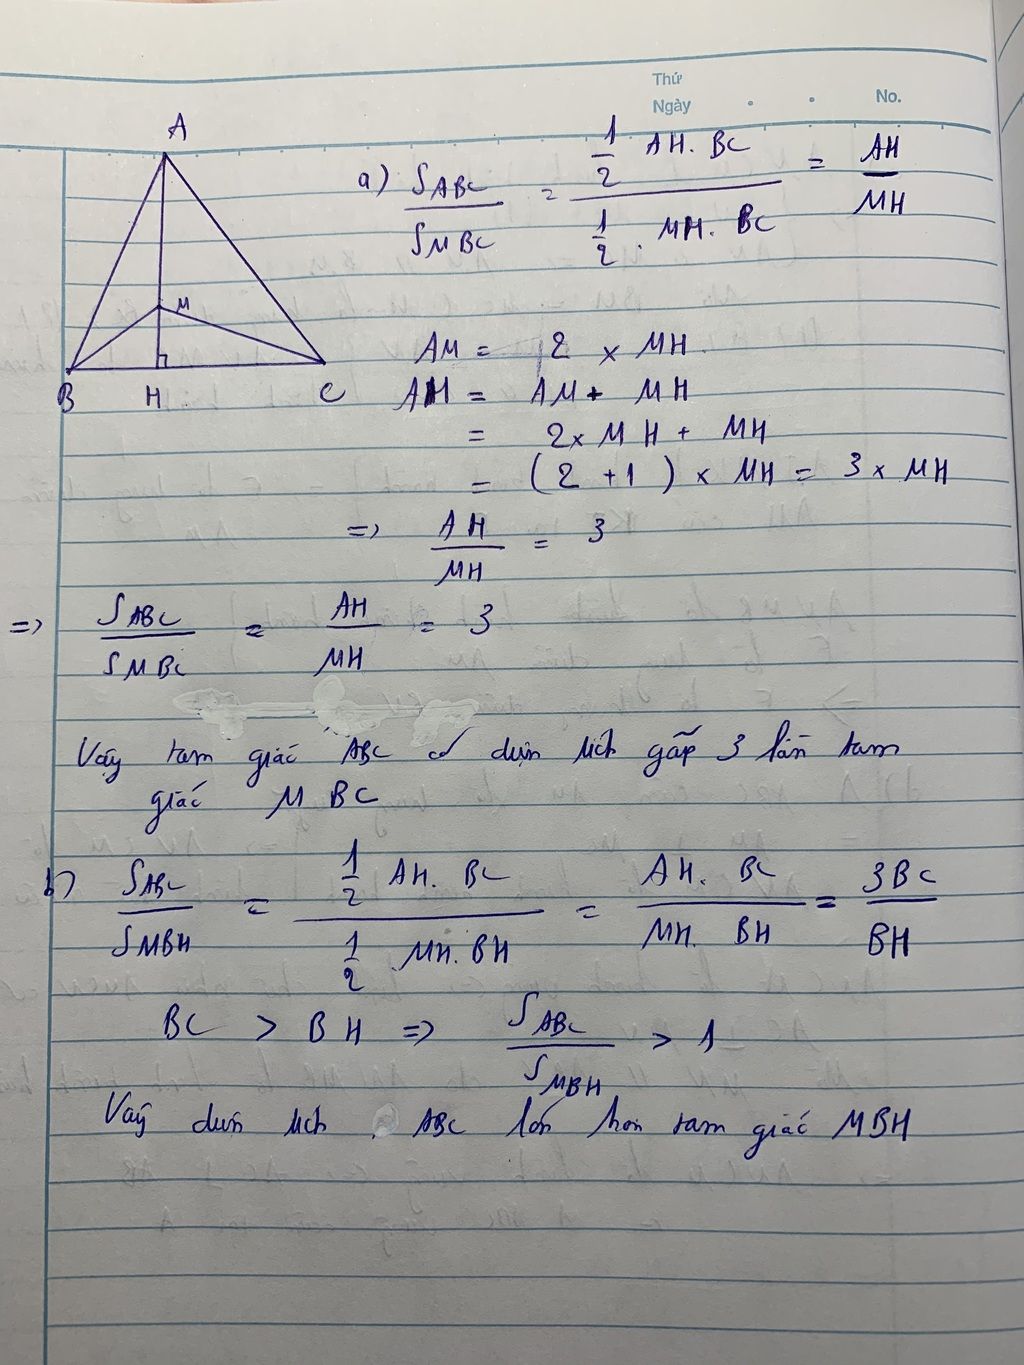 Thứ
Ngày . . No.
A
M
B H C
a) S ABC / S MBC = 1/2 AH. BC / 1/2 . MH. BC = AH / MH
AM = 2 x MH
AH = AM + MH
= 2 x MH + MH
= (2 + 1) x MH = 3 x MH
=> AH / MH = 3
=> S ABC / S MBC = AH / MH = 3
Vậy tam giác ABC có diện tích gấp 3 lần tam
giác MBC
b) S ABC / S MBH = 1/2 AH. BC / 1/2 . MH. BH = AH. BC / MH. BH = 3BC / BH
BC > BH => S ABC / S MBH > 1
Vậy diện tích . ABC lớn hơn tam giác MBH